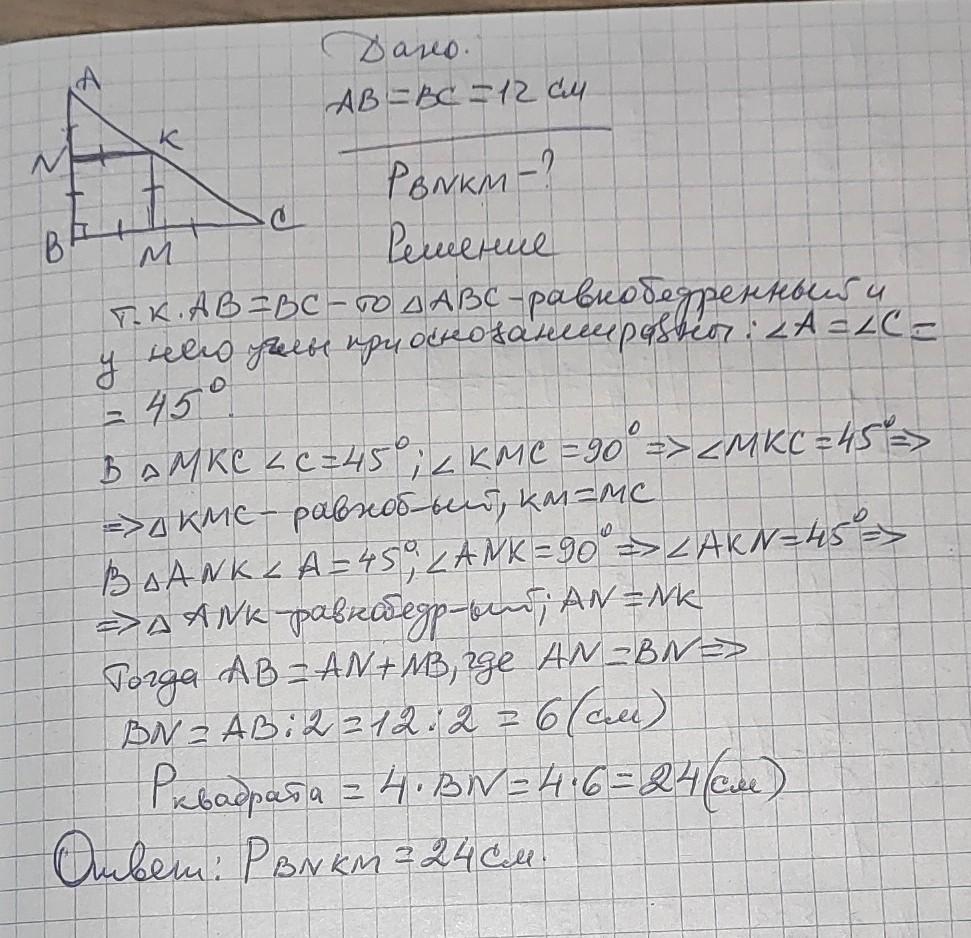 Дано.
AB = BC = 12 см
A
N
K
B
M
C
PBNKM - ?
Решение
т.к. AB = BC - то △ABC - равнобедренный и
у него углы при основании равны: ∠A = ∠C =
= 45°.
В △MKC ∠C = 45°; ∠KMC = 90° => ∠MKC = 45° =>
=> △KMC - равноб-ный, KM = MC
В △ANK ∠A = 45°; ∠ANK = 90° => ∠AKN = 45° =>
=> △ANK - равнобедр-ый; AN = NK
Тогда AB = AN + NB, где AN = BN =>
BN = AB : 2 = 12 : 2 = 6 (см)
Pквадрата = 4 · BN = 4 · 6 = 24 (см)
Ответ: PBNKM = 24 см.